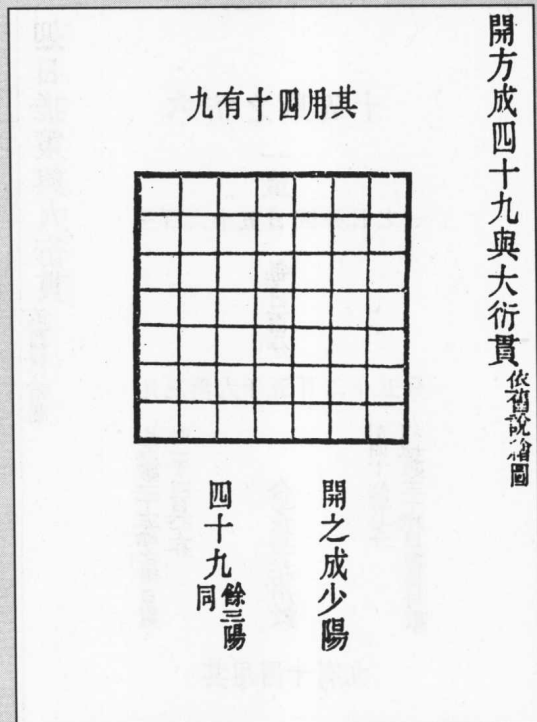 開方成四十九與大衍貫
依舊說繪圖
其用四十有九
開之成少陽
四十九
餘三陽
同